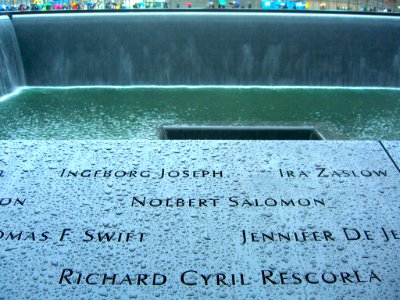 Ingeborg Joseph Ira Zaslow
on Nolbert Salomon
omas F. Swift Jennifer De Je
Richard Cyril Rescorla